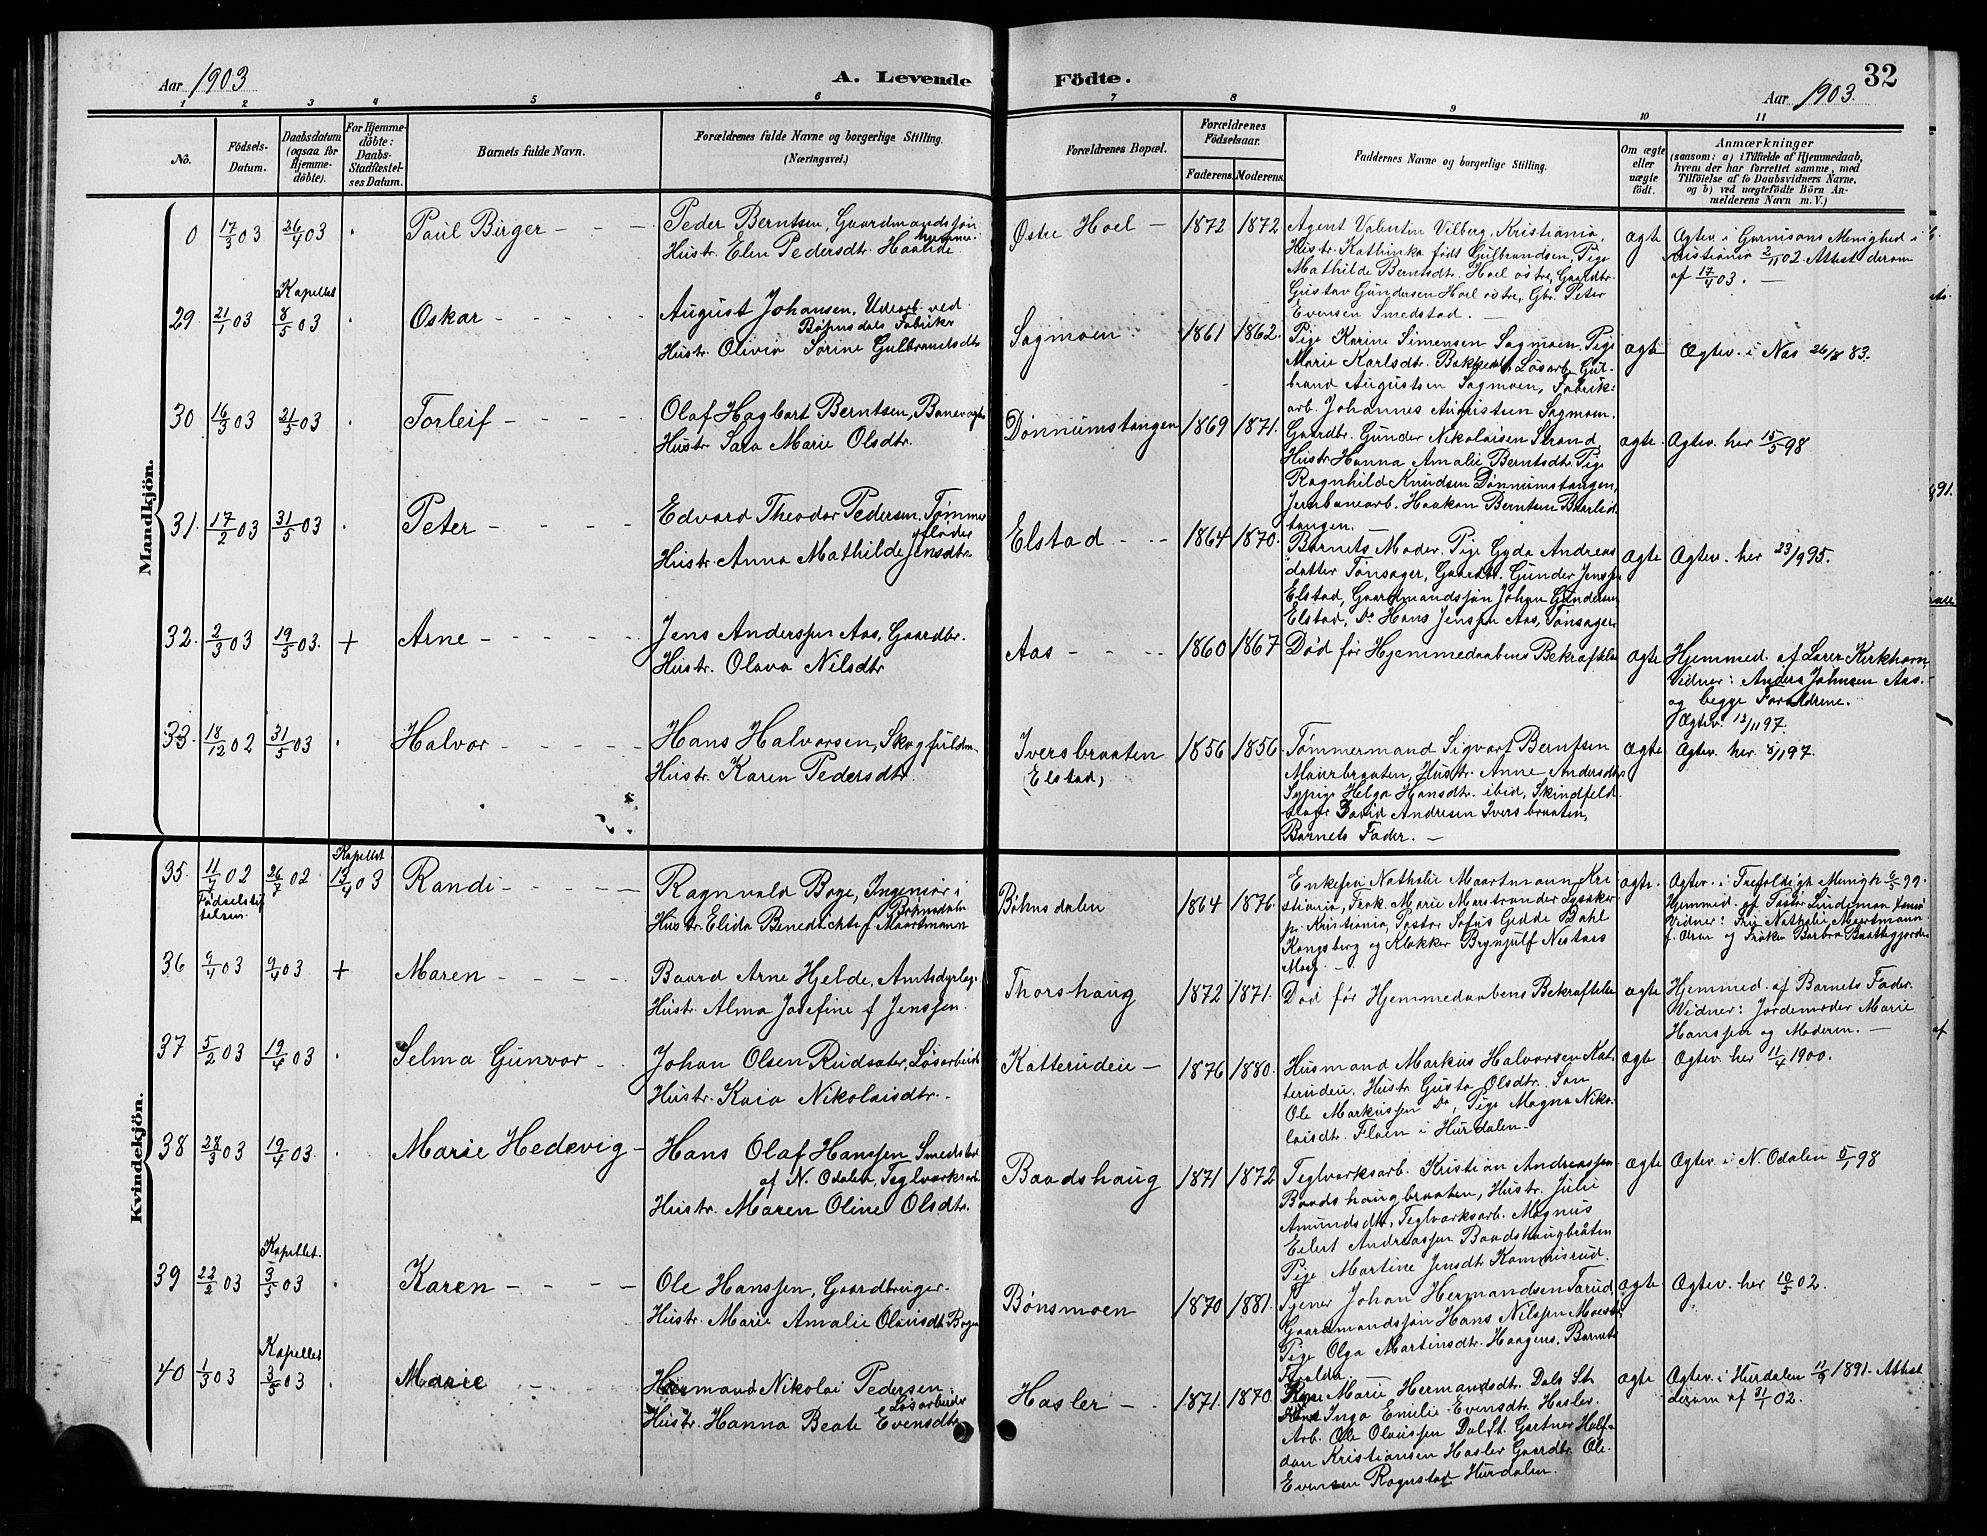 Aar 1903
A. Levende Födte.
32
Aar 1903.
1 2 3 4 5 6 7 8 9 10 11
No.
Födsels-Datum.
Daabsdatum (ogsaa for Hjemme-döbte).
For Hjemme-döbte: Daabs-Stadfæstel-ses Datum.
Barnets fulde Navn.
Forældrenes fulde Navne og borgerlige Stilling.
(Næringsvei.)
Forældrenes Bopæl.
Forældrenes Födselsaar.
Faderens. Moderens.
Faddernes Navne og borgerlige Stilling.
Om ægte eller uægte födt.
Anmærkninger
(saasom: a) i Tilfælde af Hjemmedaab,
hvem der har forrettet samme, med
Tilföielse af to Daabsvidners Navne,
og b) ved uegtefödte Börn An-
melderens Navn m. V.)
Mandkjön.
0 17/3 03 26/4 03 Paul Birger
Peder Berntsen, Gaardmandssøn
Hustr. Elen Pedersdtr.
Østre Hoel 1872 1872
Agent Valentin Vilberg, Kristiania,
Hustr. Kathinka født Gulbrandsen, Pige
Mathilde Berntsdtr. Hoel østre, Gaardbr.
Gustav Gundersen Hoel østre, Gbr. Peter
Evensen Smedstad.
ægte
Ægtev. i Garnisons Menighed i
Kristiania 2/11 02. Attest derom
af 17/4 03.
29. 21/1 03 Kapellet 8/5 03 Oskar
August Johansen, Udearb. ved
Bøhnsdalen Fabriker
Hustr. Olivia Sørine Gulbrandsdtr
Sagmoen 1861 1862.
Pige Karine Simensen Sagmoen, Pige
Marie Karlsdtr. Løsarb. Gul-
brand Augustsen Sagmoen, Fabrik-
arb. Johannes Augustsen Sagmoen.
ægte Ægtev. i Næs 26/8 83.
30 16/3 03 21/5 03 Torleif
Olaf Hagbart Berntsen, Banevogter
Hustr. Sara Marie Olsdtr.
Dønnumstangen 1869 1871.
Gaardbr. Gunder Nikolaisen Strand,
Hustr. Hanna Amalie Berntsdtr. Pige
Ragnhild Knudsen Dønnumstangen,
Jernbanearb. Haakon Berntsen
tangen.
ægte. Ægtev. her 15/5 98
31. 17/2 03 31/5 03 Peter
Edvard Theodor Pedersen, Tømmer
fløder
Hustr. Anna Mathilde Jensdtr.
Elstad 1864 1870.
Barnets Moder, Pige Gyda Andreas
datter Tønsager, Gaardbr. Gunder Jenssen
Elstad, Gaardmandssøn Johan Gundersen
Elstad, Do Hans Jenssen Aas, Tønsager
ægte Ægtev. her 23/9 95.
32. 2/3 03 19/5 03. + Arne
Jens Anderssen Aas, Gaardbr.
Hustr. Olava Nilsdtr
Aas 1860 1867
Død før Hjemmedaabens Bekræftelse
ægte
Hjemmed. af Lærer Kirkhorn,
Vidner: Anders Johnsen Aas.
og begge Forældrene.
Ægtev. 12/11 97.
33. 18/12 02 31/5 03 Halvor
Hans Halvorsen, Skogfuldm.
Hustr. Karen Pedersdtr.
Iversbraaten (Elstad) 1856 1856.
Tømmermand Sigvart Berntsen
Maurbraaten, Hustr. Anne Andersdtr
Sypige Helga Hansdtr. ibid, Skindfeld
David Andresen Iversbraaten,
Barnets Fader.
ægte Ægtev. her 97.
Kvindekjön.
35. 11/7 02 26/7 02 Kapellet 13/4 03 Randi
Ragnvald Boye, Ingeniør i
Bøhnsdalen
Hustr. Elida Benedichte f Maartmann
Bøhnsdalen 1864 1876.
Enkefru Nathalie Maartmann Kri-
stiania, Frøk. Marie Mastrander Lysaker
pr. Kristiania, Pastor Sofus Gedde Dahl
Kongsberg og Klokker Brynjulf
ægte.
Ægtev. i Trefoldigh. Menigh. 6/5 99.
Hjemmed. af Pastor Lindeman
Vidner: Nathalie Maartmann
36 9/4 03 9/4 03 + Maren
Baard Arne Hjelde, Amtsdyrlæge
Hustr. Alma Josefine f Jenssen.
Thorshaug 1872 1871.
Død før Hjemmedaabens Bekræftelse
ægte
Hjemmed. af Barnets Fader.
Vidner: Jordemoder Marie
Hanssen og Moderen.
37 5/2 03 19/4 03 Selma Gunvor
Johan Olsen Rudsæter, Løsarbeid
Hustr. Kaia Nikolaisdtr.
Katterudeie 1876 1880.
Husmand Markus Halvorsen Kat-
terudeie, Hustr. Gusta Olsdtr. Søn
Ole Markussen Do, Pige Magna Niko-
laisdtr. Floen i Hurdalen.
ægte Ægtev. her 11/4 1900.
38 28/3 03 19/4 03. Marie Hedevig
Hans Olaf Hanssen Smedstad
af N. Odalen, Teglværksarb
Hustr. Maren Oline Olsdtr.
Baadshaug 1871 1872
Teglværksarb. Kristian Andreassen
Baadshaugbraaten, Hustr. Julie
Amundsdtr, Teglværksarb. Magnus
Eilert Andreassen Baadshaugbraaten
Pige Martine Jensdtr Kommisrud.
ægte Ægtev. i N. Odalen 5/1 98
39 22/2 03 Kapellet. 3/5 03 Karen
Ole Hanssen, Gaardbruger.
Hustr. Marie Amalie Olausdtr
Bønsmoen 1870 1881.
Tjener Johan Hermandsen Tarud
Gaardmandssøn Hans Nilssen
Pige Olga Martinsdtr. Haagens, Barnets
ægte. Ægtev. her 10/5 02.
40 1/3 03 Kapellet 3/5 03 Marie
Hermand Nikolai Pedersen
Løsarbeider
Hustr. Hanna Beate Evensdtr
Hasler 1871. 1870.
Pige Marie Hermandsdtr. Dals St.
Inga Emilie Evensdtr. Hasler.
Arb. Ole Olaussen Dal St. Gartner Half-
dan Kristiansen Hasler Gaardbr. Ole
Evensen Rognstad Hurdalen.
ægte
Ægtev. i Hurdalen 1891. Attest
derom af 31/1 02.